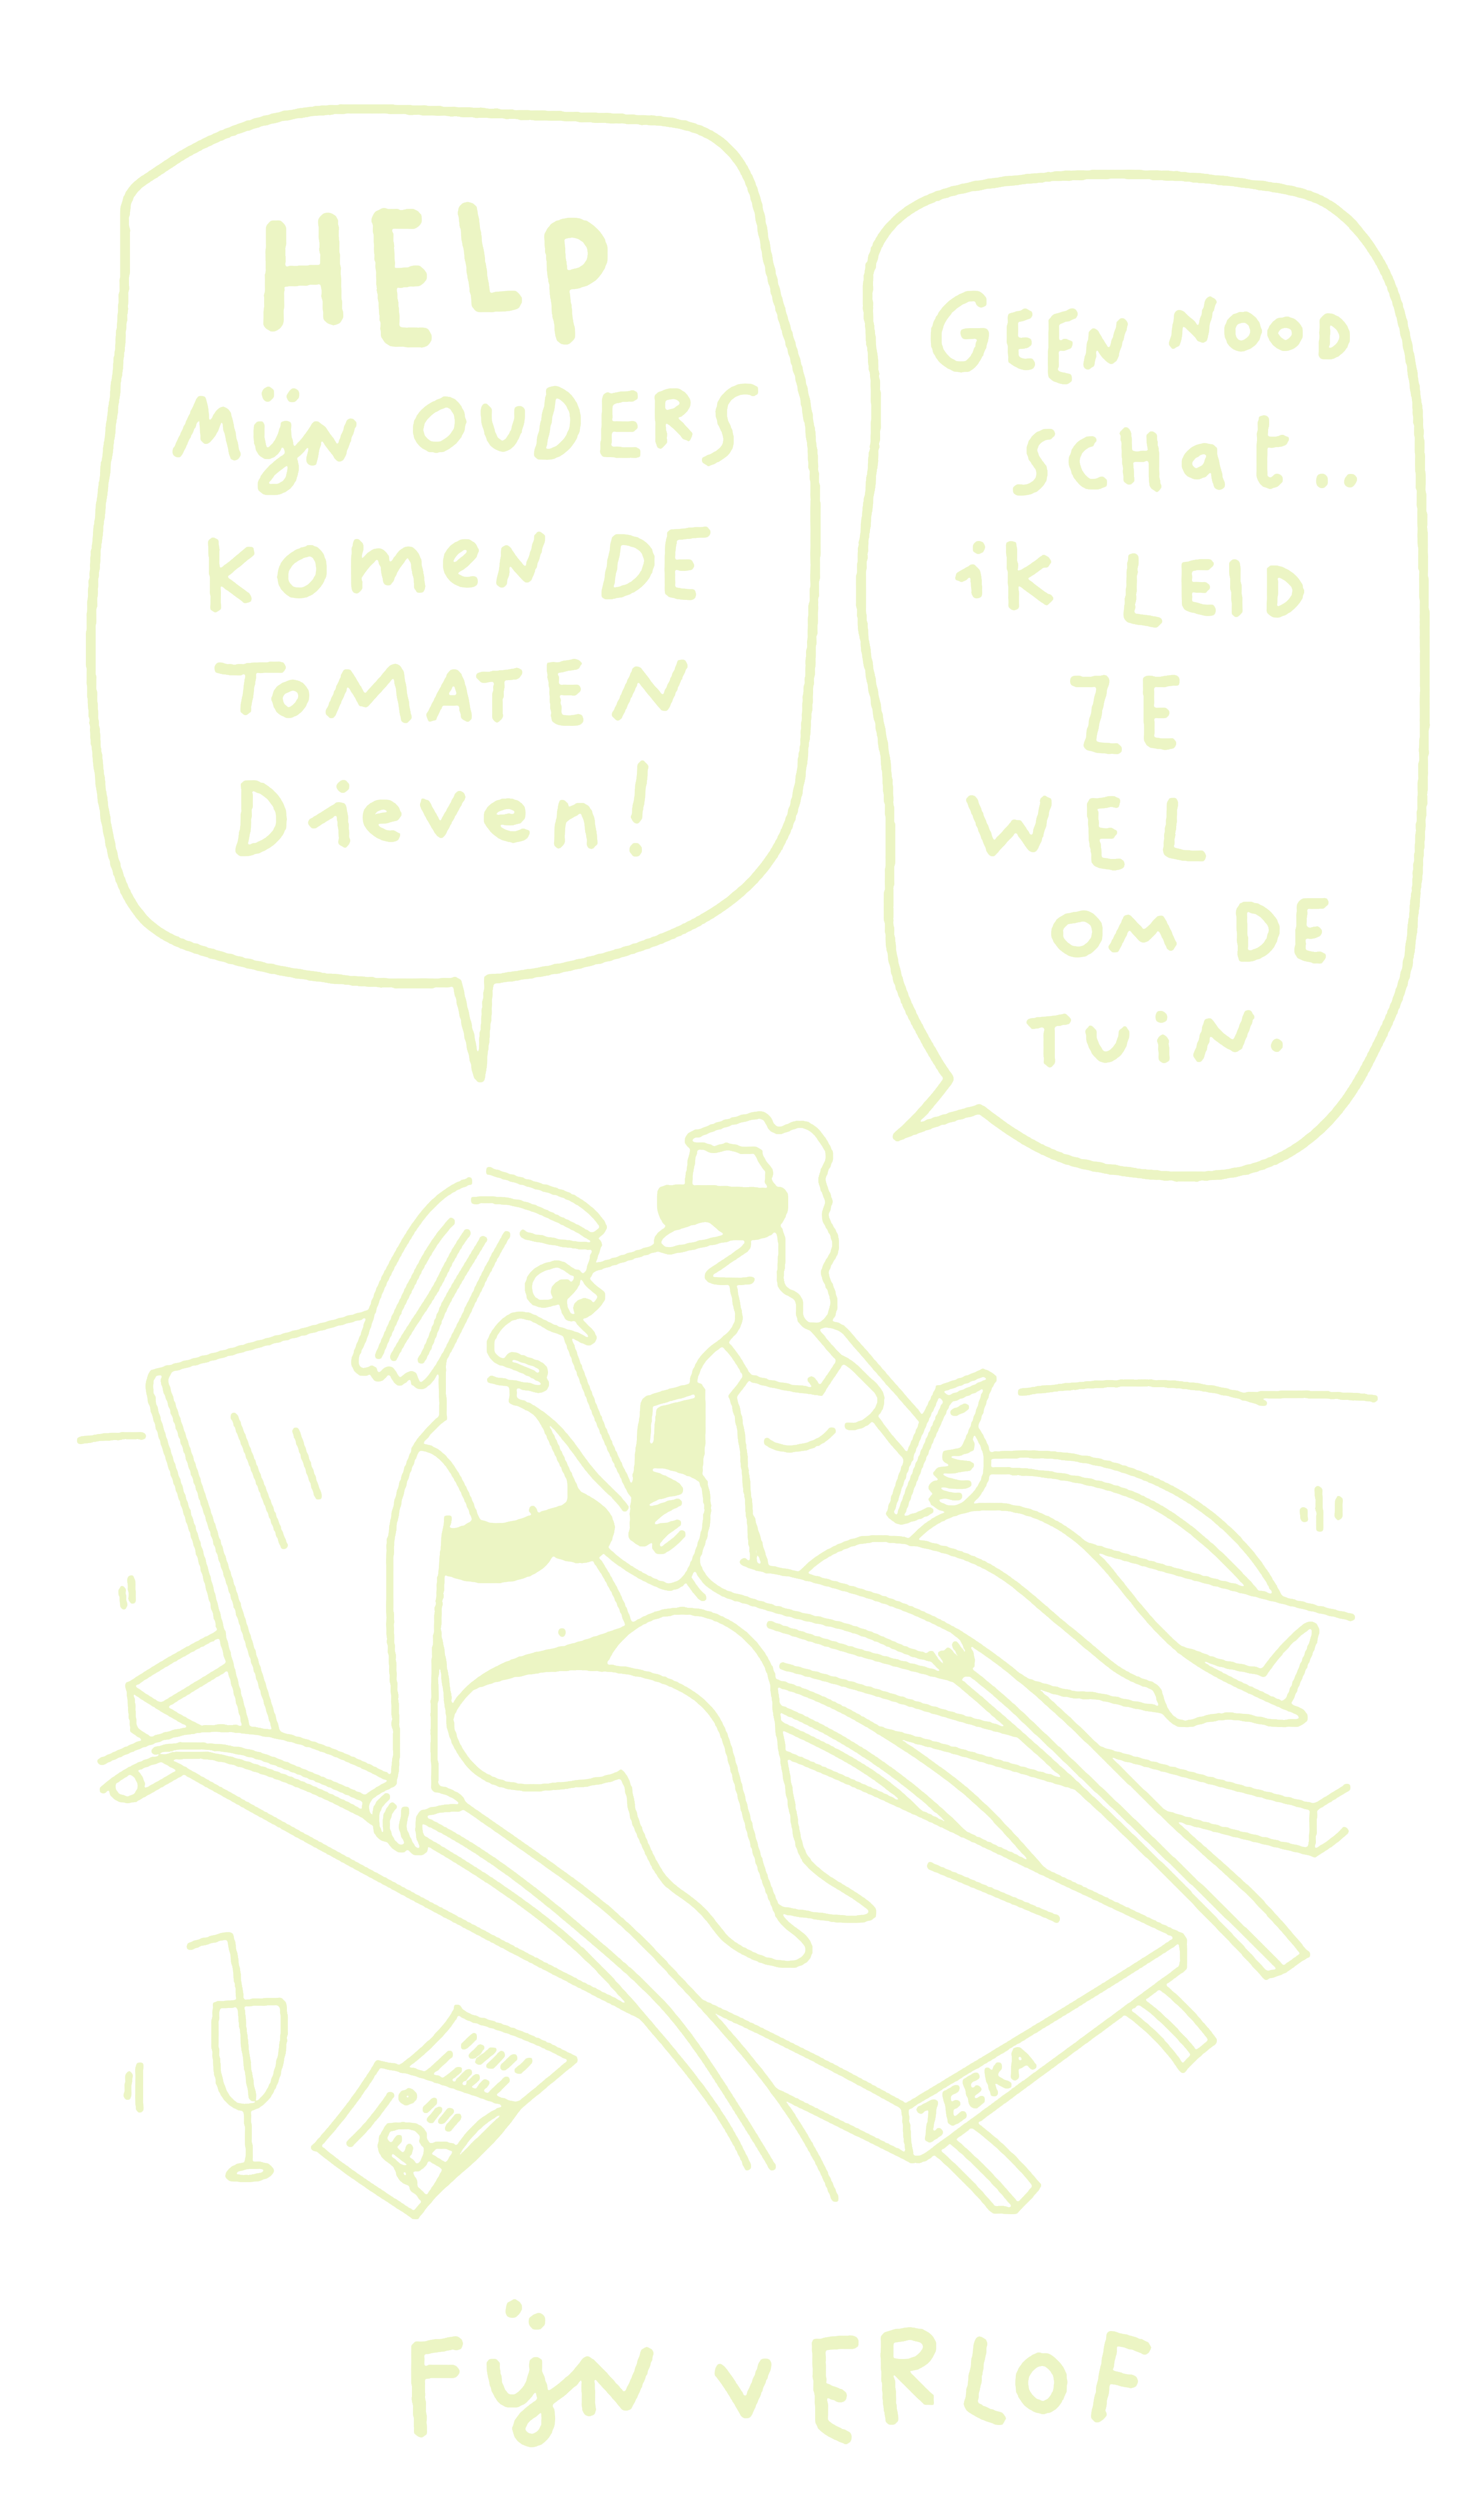 HELP
mijn OUDERS
Komen DE
TOMATEN
Dieven!
GEEN NOOD
SCHAT..
iK LEiD
ZE
WEL
OM DE
TUiN.
FijN VERLOF